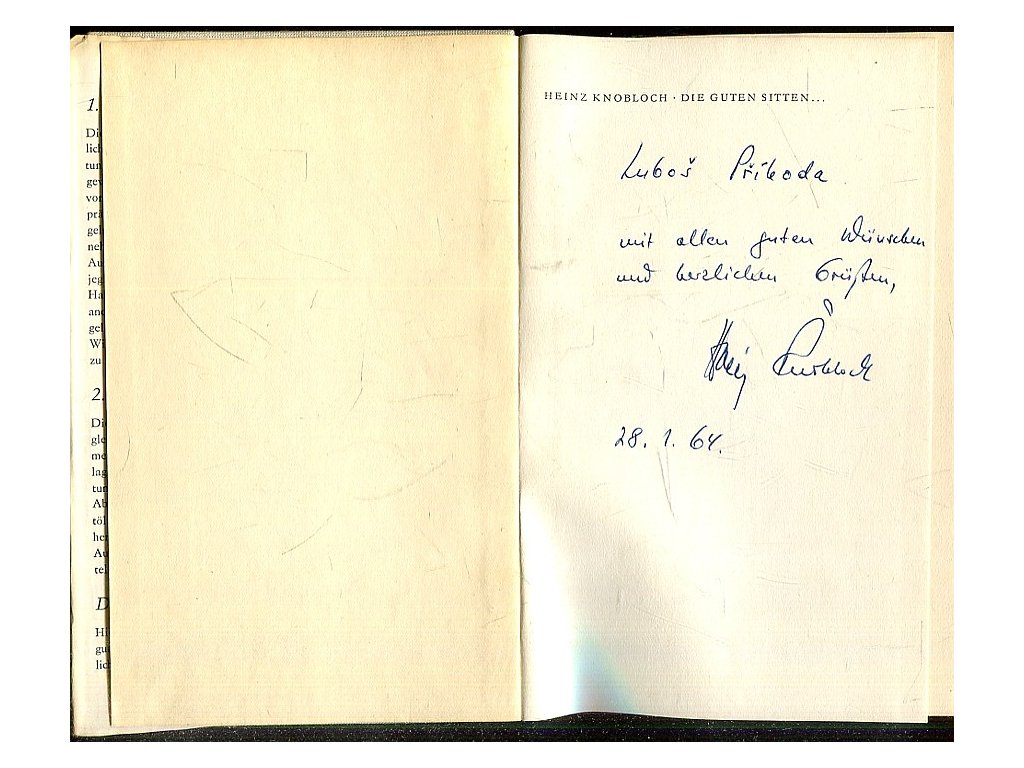 1.
Di
lich
tun
gev
vor
prä
gel
neh
Au
jeg
Ha
and
gel
Wi
zu
2.
Di
gle
me
lag
tun
Ab
töl
he
Au
tel
D
Hi
gu
lic
HEINZ KNOBLOCH · DIE GUTEN SITTEN...
Luboš Příhoda
mit allen guten Wünschen
und herzlichen Grüßen,
Heinz Knobloch
28. 1. 64.